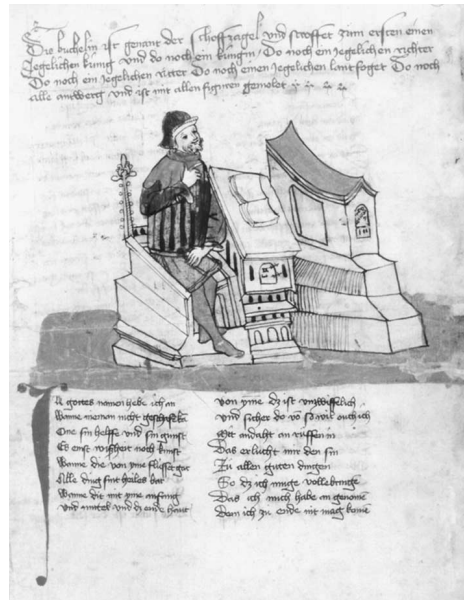 Dis buchelin ist genant der schoffzagel vnd stroffet zum ersten einen
Jegelichen kunig vnd do noch ein kungin / Do noch ein Jegelichen richter
Do noch ein jegelichen ritter Do noch einen Jegelichen lantfoget Do noch
alle antwerg vnd ist mit allen figuren gemolet
In gottes namen hebe ich an
Wanne nieman nicht
One sin helffe vnd sin gunst
Es enist wißheit noch kunst
Wanne die von yme flisset gar
Alle ding sint heiles bar
Wanne die mit yme anfang
vnd mittel vnd ende hant
von yme dz ist vnwisselich
vnd sicher do vō so wil ouch ich
Mit andaht an ruffen in
Das erlucht mir den sin
Zu allen guten dingen
So dz ich muge vollebringe
Das ich mich habe an genome
Dem ich zu ende nit mag kome